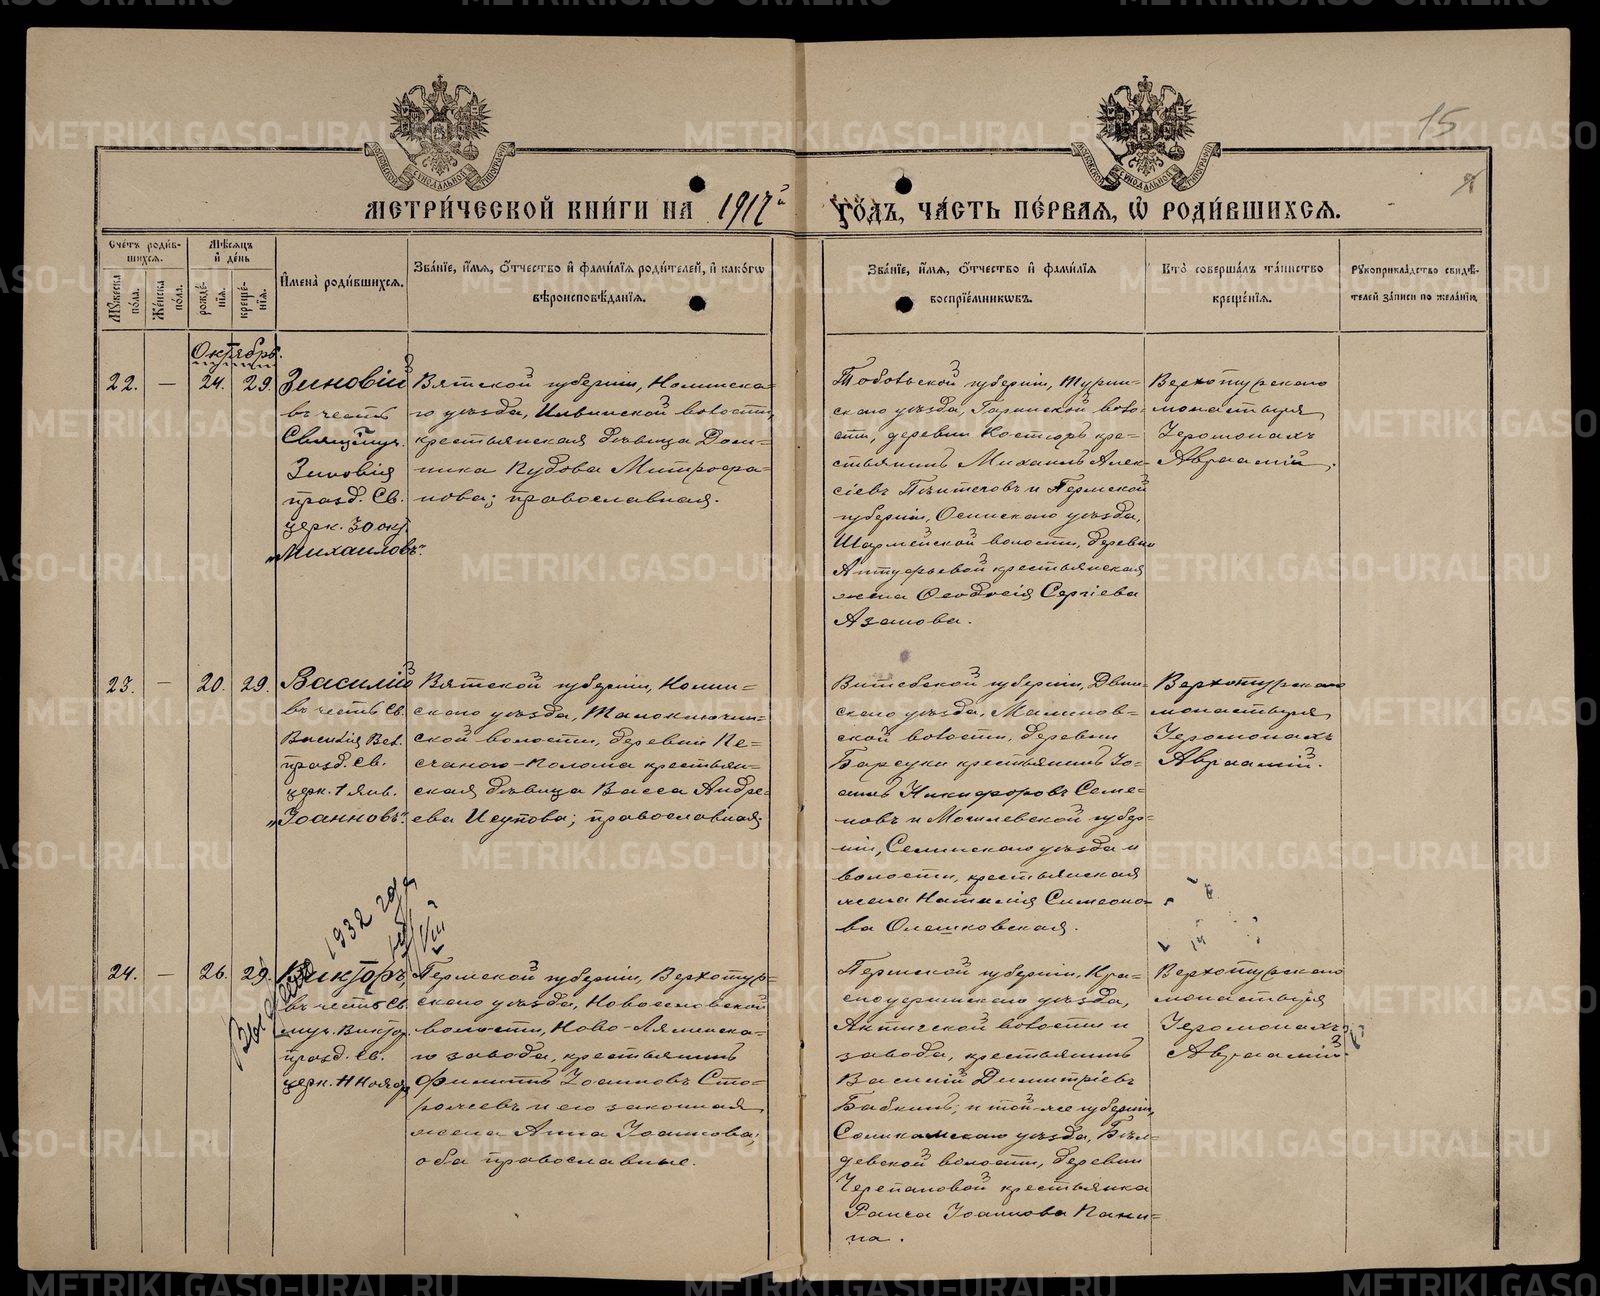 МЕТРИ́ЧЕСКОЙ КНИ́ГИ НА 1917й ГО́ДЪ, ЧА́СТЬ ПЕ́РВАЯ, Ѡ РОДИ́ВШИХСЯ.
15
Сче́тъ роди́в-
шихся.
Му́жеска по́ла.
Же́нска по́ла.
Мѣ́сяцъ
и де́нь
рожде́нія.
креще́нія.
Имена́ роди́вшихся.
Зва́ніе, и́мя, о́тчество и фами́лія роди́телей, и како́гѡ
вѣроисповѣ́данія.
Зва́ніе, и́мя, о́тчество и фами́лія
воспріе́мниковъ.
Кто̀ соверша́лъ та́инство
креще́нія.
Рукоприкла́дство свидѣ́-
телей за́писи по жела́нію.
Октябрь.
22. — 24. 29.
Зиновій
въ честь
Священномуч.
Зиновія
празд. Св.
церк. 30 окт
„Михаиловъ".
Вятской губерніи, Нолинска-
го уѣзда, Ильинской волости,
крестьянская дѣвица Дом-
ника Митрофа-
нова; православная.
Тобольской губерніи, Турин-
скаго уѣзда, Гаринской воло-
сти, деревни кре-
стьянинъ Михаилъ Алек-
сіевъ и Пермской
губерніи, Осинскаго уѣзда,
волости, деревни
крестьянская
жена Ѳеодосія Сергіева
Азанова.
Верхотурскаго
монастыря
Іеромонахъ
Авраамій.
23. — 20. 29.
Василій
въ честь Св.
Василія Вел.
празд. Св.
церк. 1 Янв.
„Іоанновъ".
Вятской губерніи, Нолин-
скаго уѣзда,
ской волости, деревни Пе-
счаного-Полома крестьян-
ская дѣвица Васса Андре-
ева Исупова; православная.
Витебской губерніи, Двин-
скаго уѣзда, Малинов-
ской волости, деревни
Барсуки крестьянинъ Іо-
аннъ Никифоровъ Семе-
новъ и Могилевской губер-
ніи, Сеннинскаго уѣзда и
волости, крестьянская
жена Наталія Симеоно-
ва Олешковская.
Верхотурскаго
монастыря
Іеромонахъ
Авраамій.
1932 года
VIII
24. — 26. 29.
Викторъ,
въ честь Св.
муч. Виктор.
празд. Св.
церк. 11 Нояб
Пермской губерніи, Верхотур-
скаго уѣзда,
волости, Ново-Лялинска-
го завода, крестьянинъ
Филиппъ Іоанновъ Сто-
рожевъ и его законная
жена Анна Іоаннова;
оба православные.
Пермской губерніи, Кра-
сноуфимскаго уѣзда,
Артинской волости и
завода, крестьянинъ
Василій Димитріевъ
Бабкинъ; и той-же губерніи,
Соликамскаго уѣзда,
волости, деревни
Черепановой крестьянка
Раиса Іоаннова Пани-
на.
Верхотурскаго
монастыря
Іеромонахъ
Авраамій.
METRIKI.GASO-URAL.RU